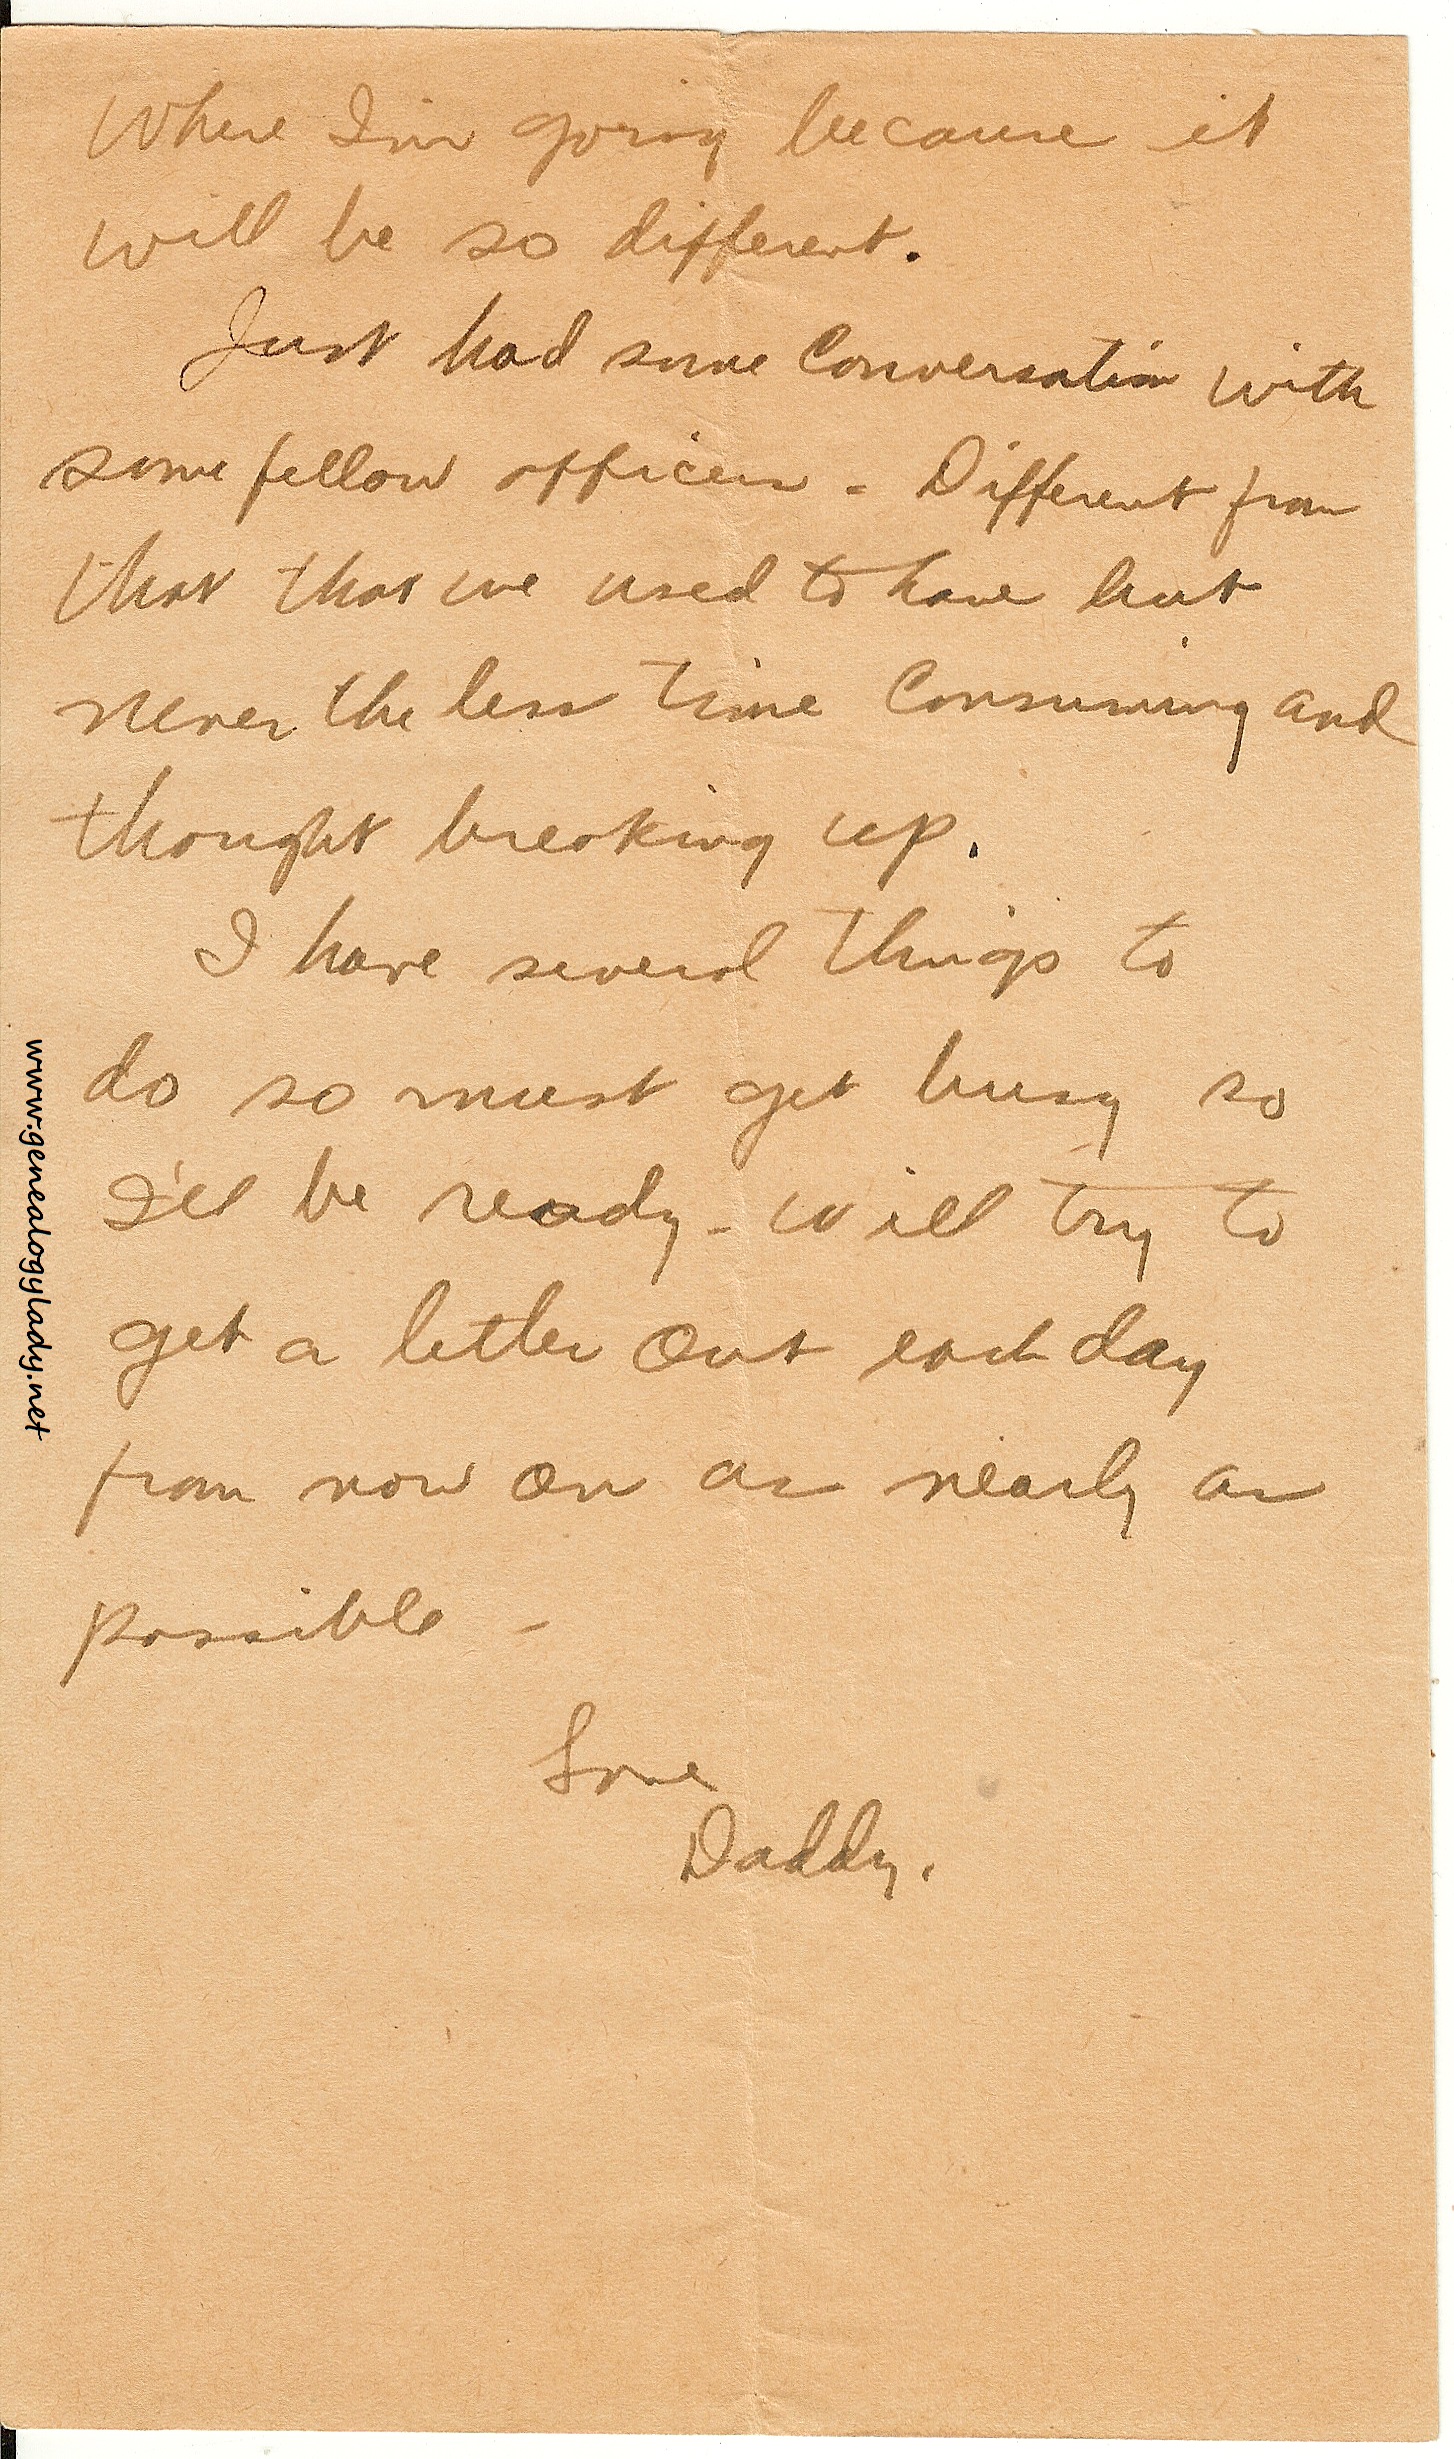 Where I'm going because it
will be so different.
Just had some conversation with
some fellow officers - Different from
that that we used to have but
never the less time consuming and
thought breaking up.
I have several things to
do so must get busy so
I'll be ready - will try to
get a letter out each day
from now on as nearly as
possible -
Love
Daddy.
www.genealogylady.net